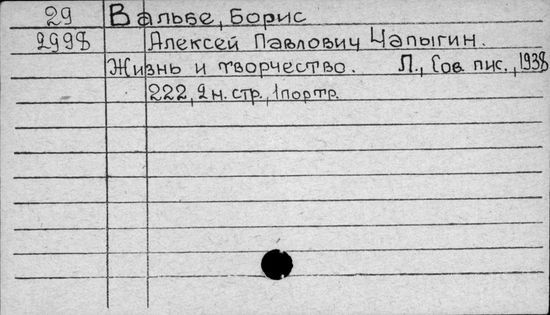 29 Вальбе, Борис
2998 Алексей Павлович Чапыгин.
Жизнь и творчество. Л., Сов. пис., 1938
222, 2 н. стр., 1 портр.